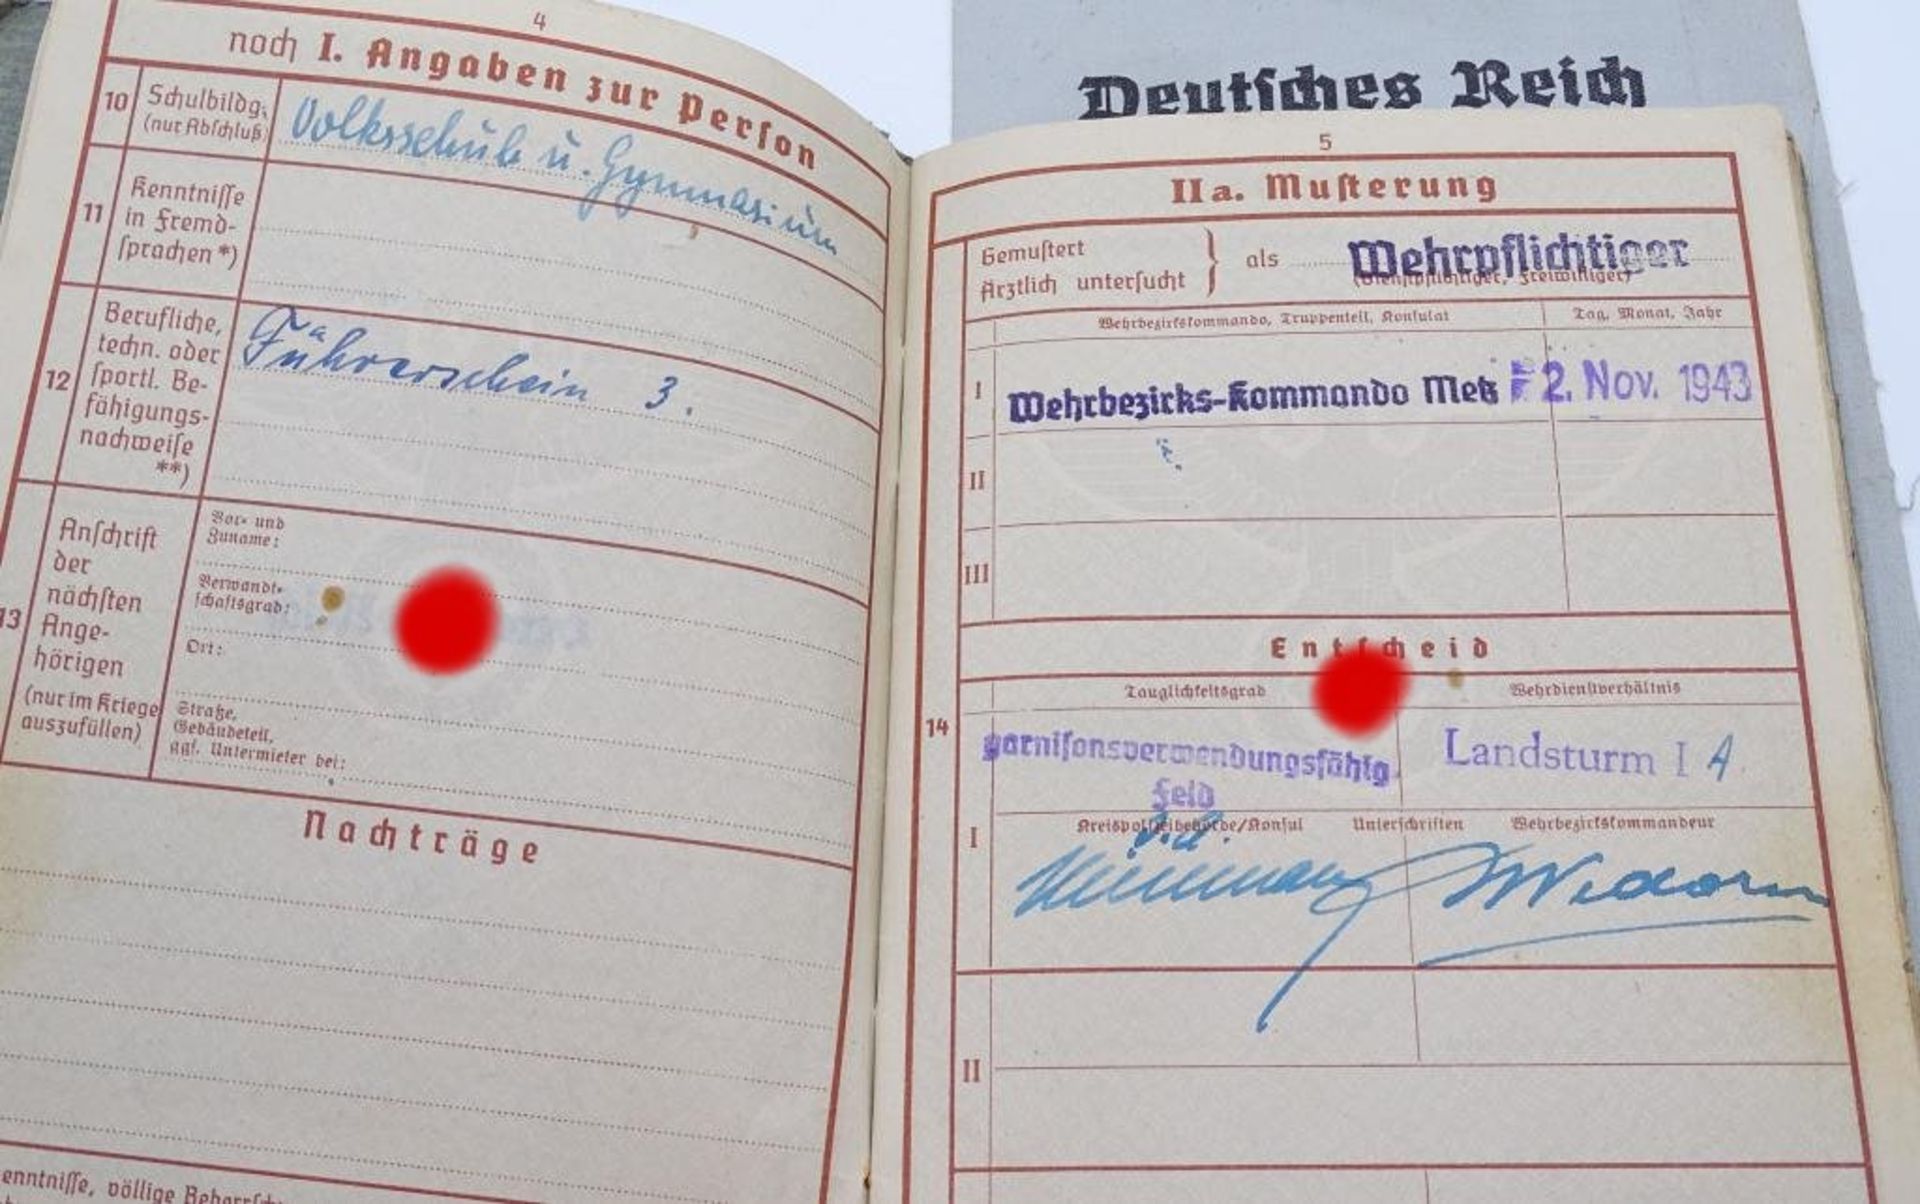 Deutsches Reich
4
noch I. Angaben zur Person
10
Schulbildg.
(nur Abschluß)
Volksschule u. Gymnasium
11
Kenntnisse
in Fremd-
sprachen *)
12
Berufliche,
techn. oder
sportl. Be-
fähigungs-
nachweise
**)
Führerschein 3.
13
Anschrift
der
nächsten
Ange-
hörigen
(nur im Kriege
auszufüllen)
Vor- und
Zuname:
Verwandt-
schaftsgrad:
Ort:
Straße,
Gebäudeteil,
ggf. Untermieter bei:
Nachträge
enntnisse, völlige
5
IIa. Musterung
Gemustert
Ärztlich untersucht } als Wehrpflichtiger
(Dienstpflichtiger, Freiwilliger)
Wehrbezirkskommando, Truppenteil, Konsulat
Tag, Monat, Jahr
I
Wehrbezirks-Kommando Metz 2. Nov. 1943
II
III
Entscheid
14
Tauglichkeitsgrad
Wehrdienstverhältnis
garnisonsverwendungsfähig
Feld
Landsturm I A
I
Kreispolizeibehörde/Konsul Unterschriften Wehrbezirkskommandeur
II